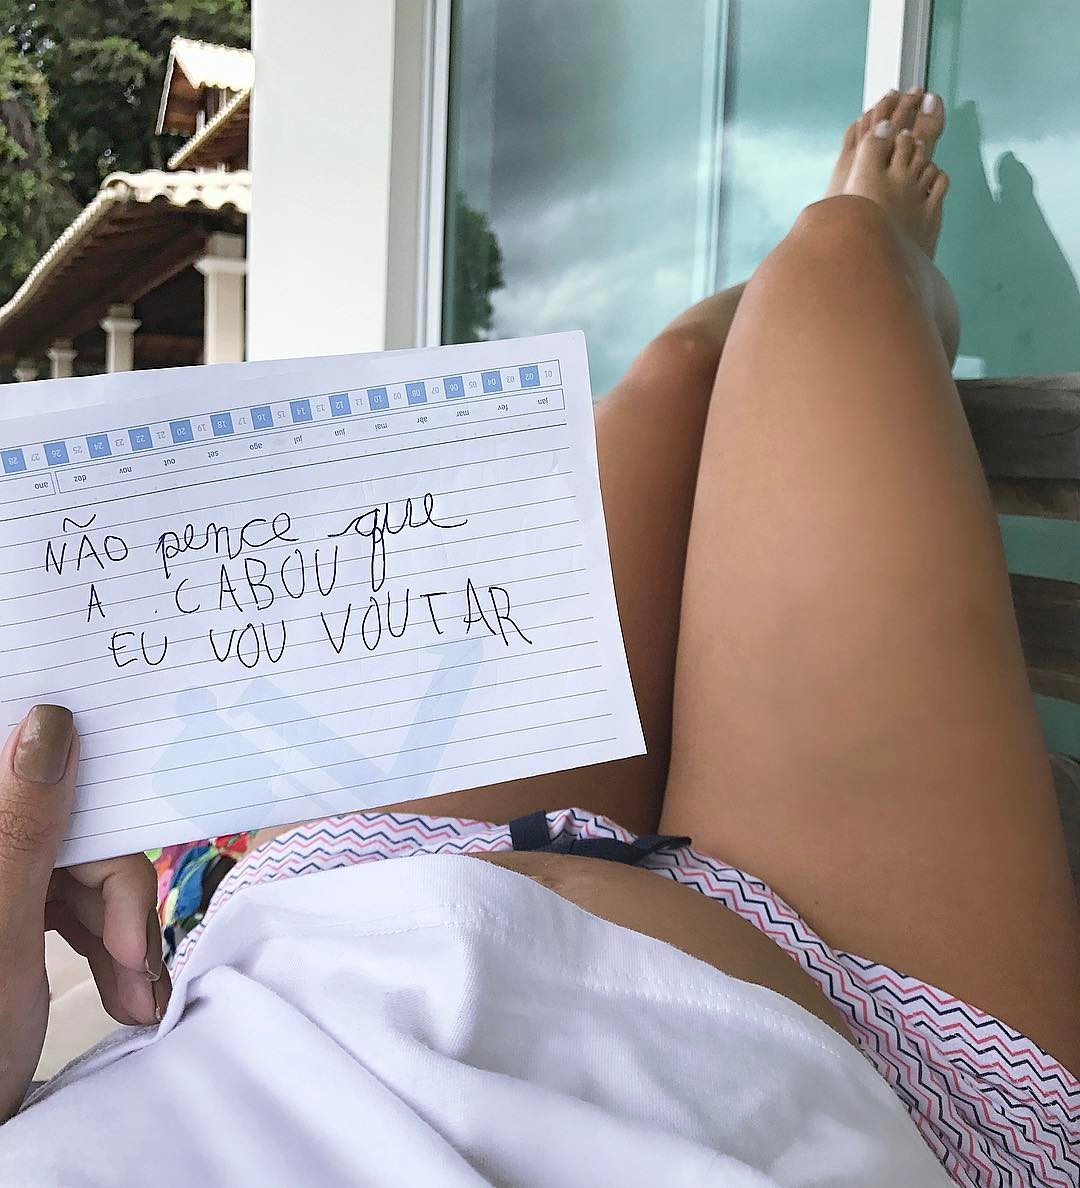 NÃO pence que
A CABOU
EU VOU VOUTAR
01 02 03 04 05 06 07 08 09 10 11 12 13 14 15 16 17 18 19 20 21 22 23 24 25 26 27 28
jan fev mar abr mai jun jul ago set out nov dez ano